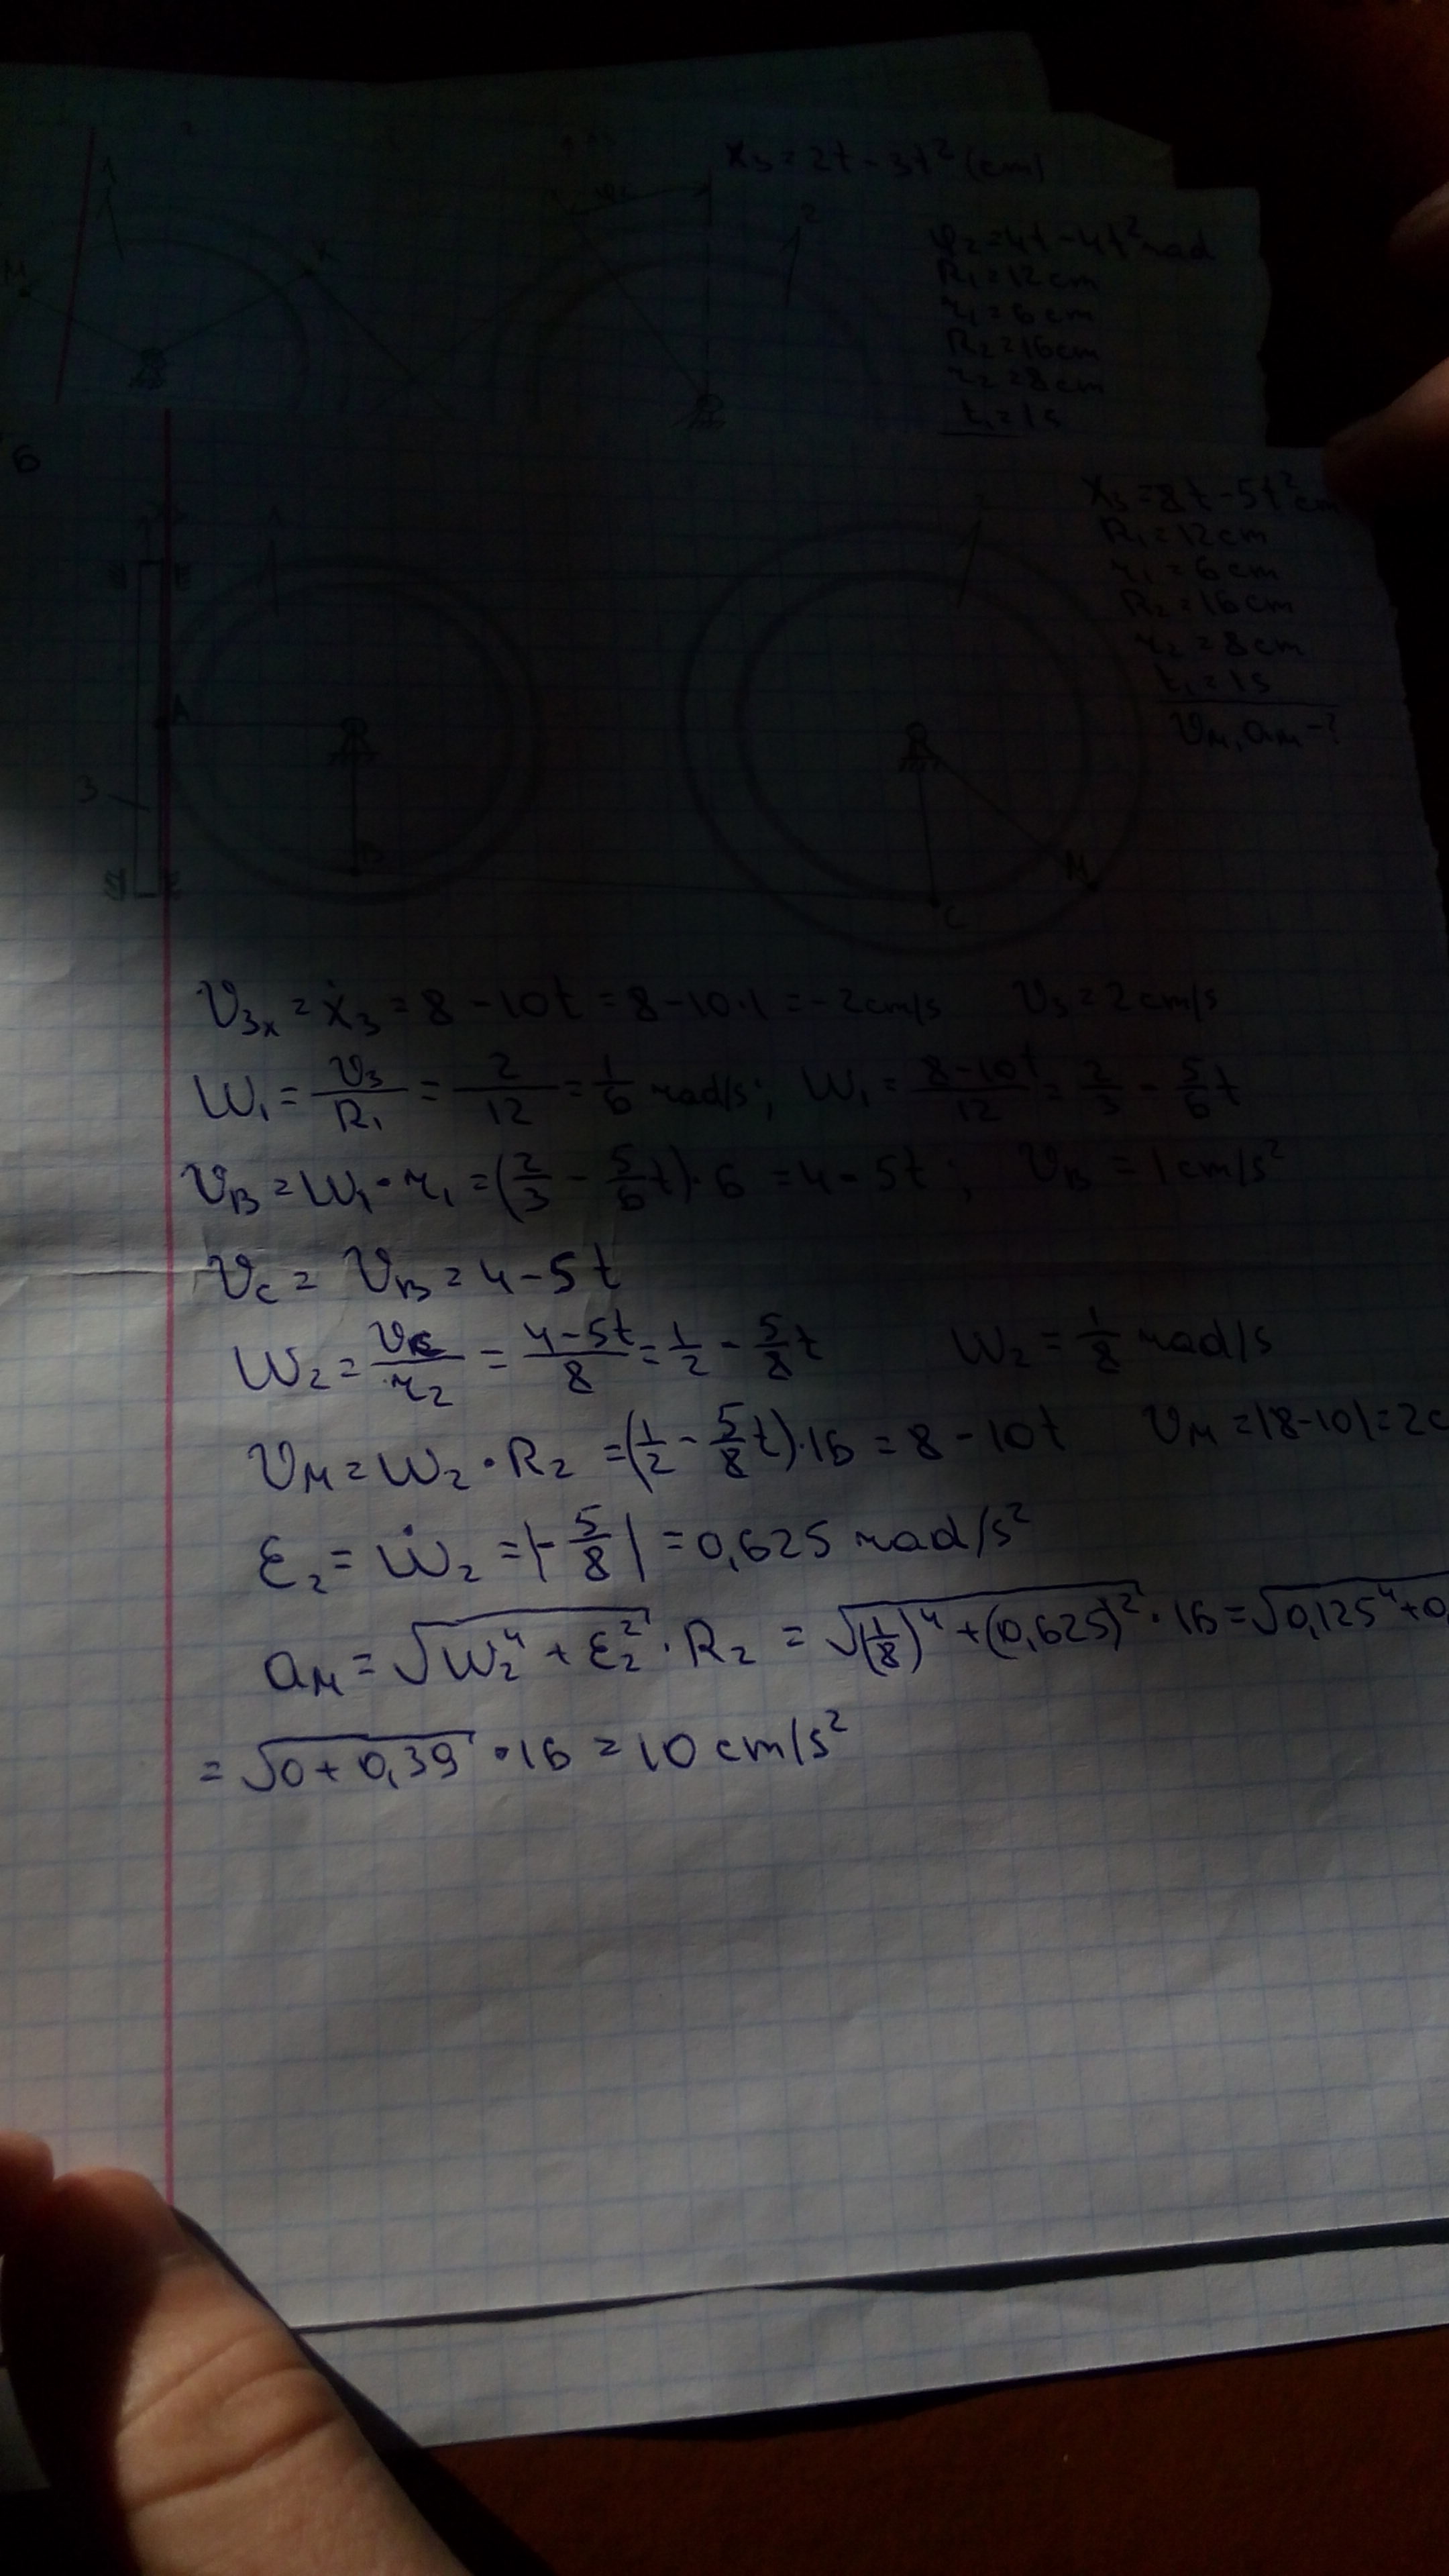 x₃ = 2t - 3t² (cm)
φ₂ = 4t - 4t² rad
R₁ = 12 cm
r₁ = 6 cm
R₂ = 16 cm
r₂ = 8 cm
t₁ = 1 s
1
M
K
2
6
x₃ = 8t - 5t² cm
R₁ = 12 cm
r₁ = 6 cm
R₂ = 16 cm
r₂ = 8 cm
t₁ = 1 s
υM, aM - ?
1
2
A
3
B
M
C
υ₃ₓ = ẋ₃ = 8 - 10t = 8 - 10·1 = -2 cm/s υ₃ = 2 cm/s
ω₁ = υ₃/R₁ = 2/12 = 1/6 rad/s; ω₁ = (8-10t)/12 = 2/3 - 5/6 t
υB = ω₁·r₁ = (2/3 - 5/6 t)·6 = 4 - 5t; υB = 1 cm/s²
υc = υB = 4 - 5t
ω₂ = υc/r₂ = (4-5t)/8 = 1/2 - 5/8 t ω₂ = 1/8 rad/s
υM = ω₂·R₂ = (1/2 - 5/8 t)·16 = 8 - 10t υM = |8-10| = 2c
ε₂ = ω̇₂ = |-5/8| = 0,625 rad/s²
aM = √(ω₂⁴ + ε₂²)·R₂ = √((1/8)⁴ + (0,625)²)·16 = √(0,125⁴ + 0,
= √(0 + 0,39)·16 = 10 cm/s²